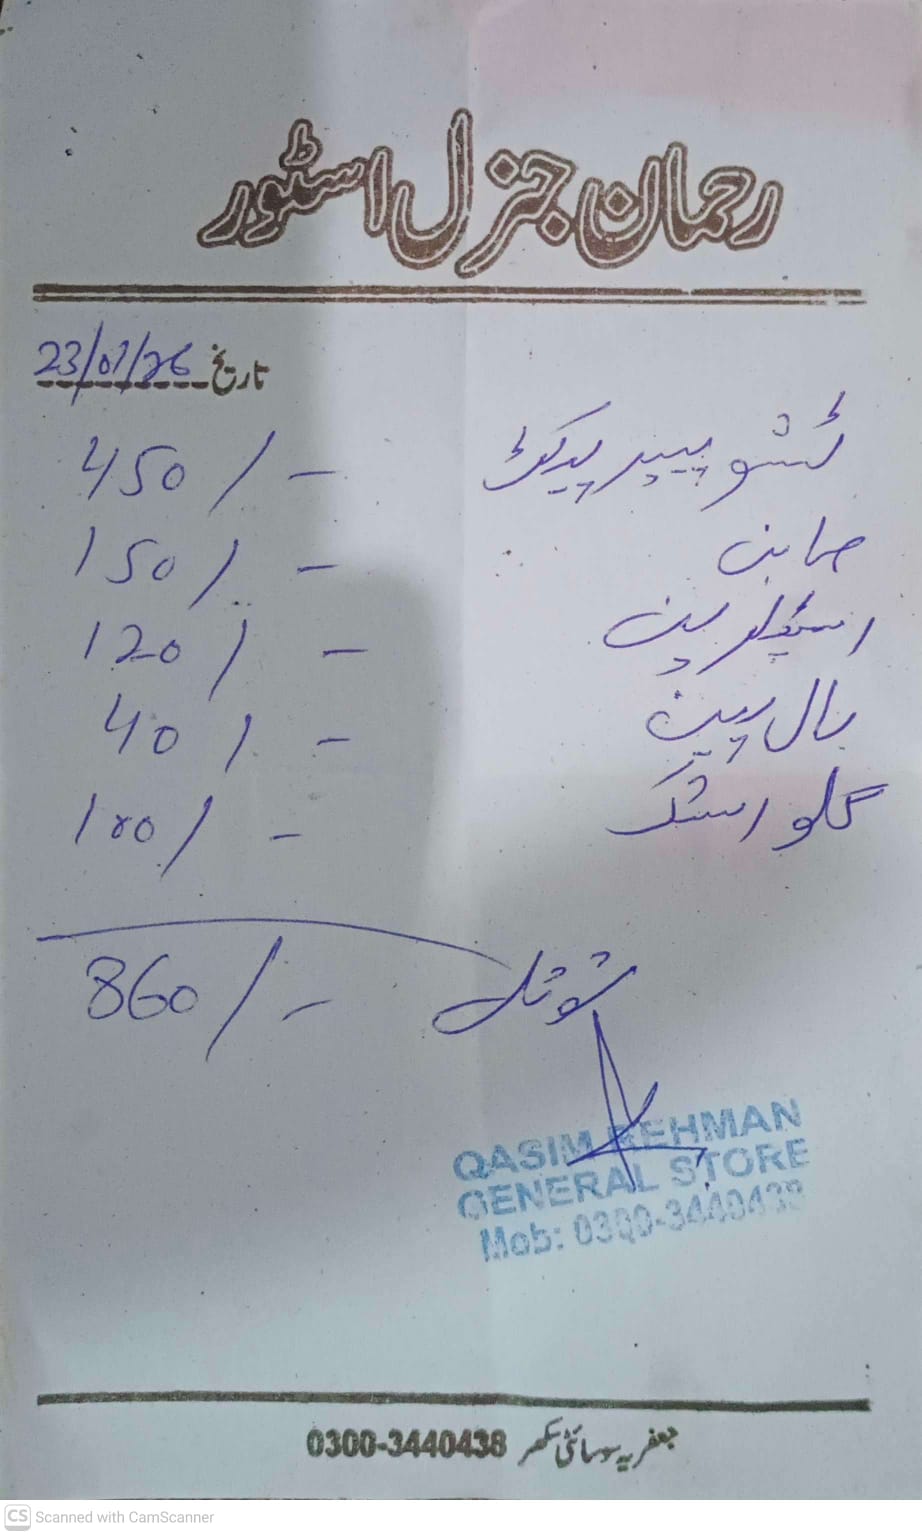 رحمان جنرل اسٹور
تاریخ 23/01/26
ٹشو پیپر پیکٹ - /450
صابن - /150
اسٹیپلر پن - /120
بال پین - /40
گلو اسٹک - /100
ٹوٹل - /860
QASIM REHMAN
GENERAL STORE
Mob: 0300-3440438
جعفریہ سوسائٹی سکھر 0300-3440438
CS Scanned with CamScanner